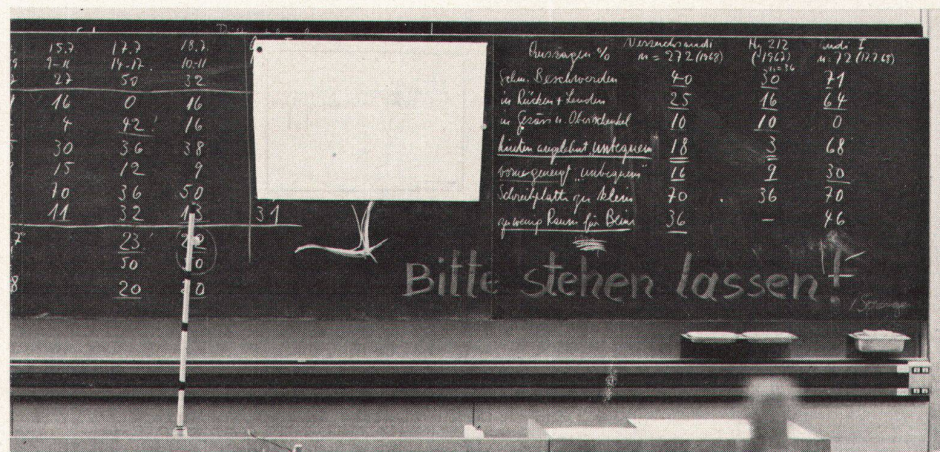 15.7 17.7 18.7.
9-11 14-17. 10-11
27 50 32
16 0 16
4 42! 16
30 36 38
15 12 9
70 36 50
11 32 13 31
23! 22
50 50
8 20 20
Aussagen %
n = 272 (1968) (1967) n. 72 (17.7.68)
Schm. Beschwerden 40 30 71
in Rücken + Lenden 25 16 64
in Gesäss u. Oberschenkel 10 10 0
hinten angelehnt „unbequem" 18 3 68
vorne geneigt „unbequem" 16 9 30
Schreibplatte zu klein 70 36 70
zu wenig Raum für Beine 36 – 46
Bitte stehen lassen!